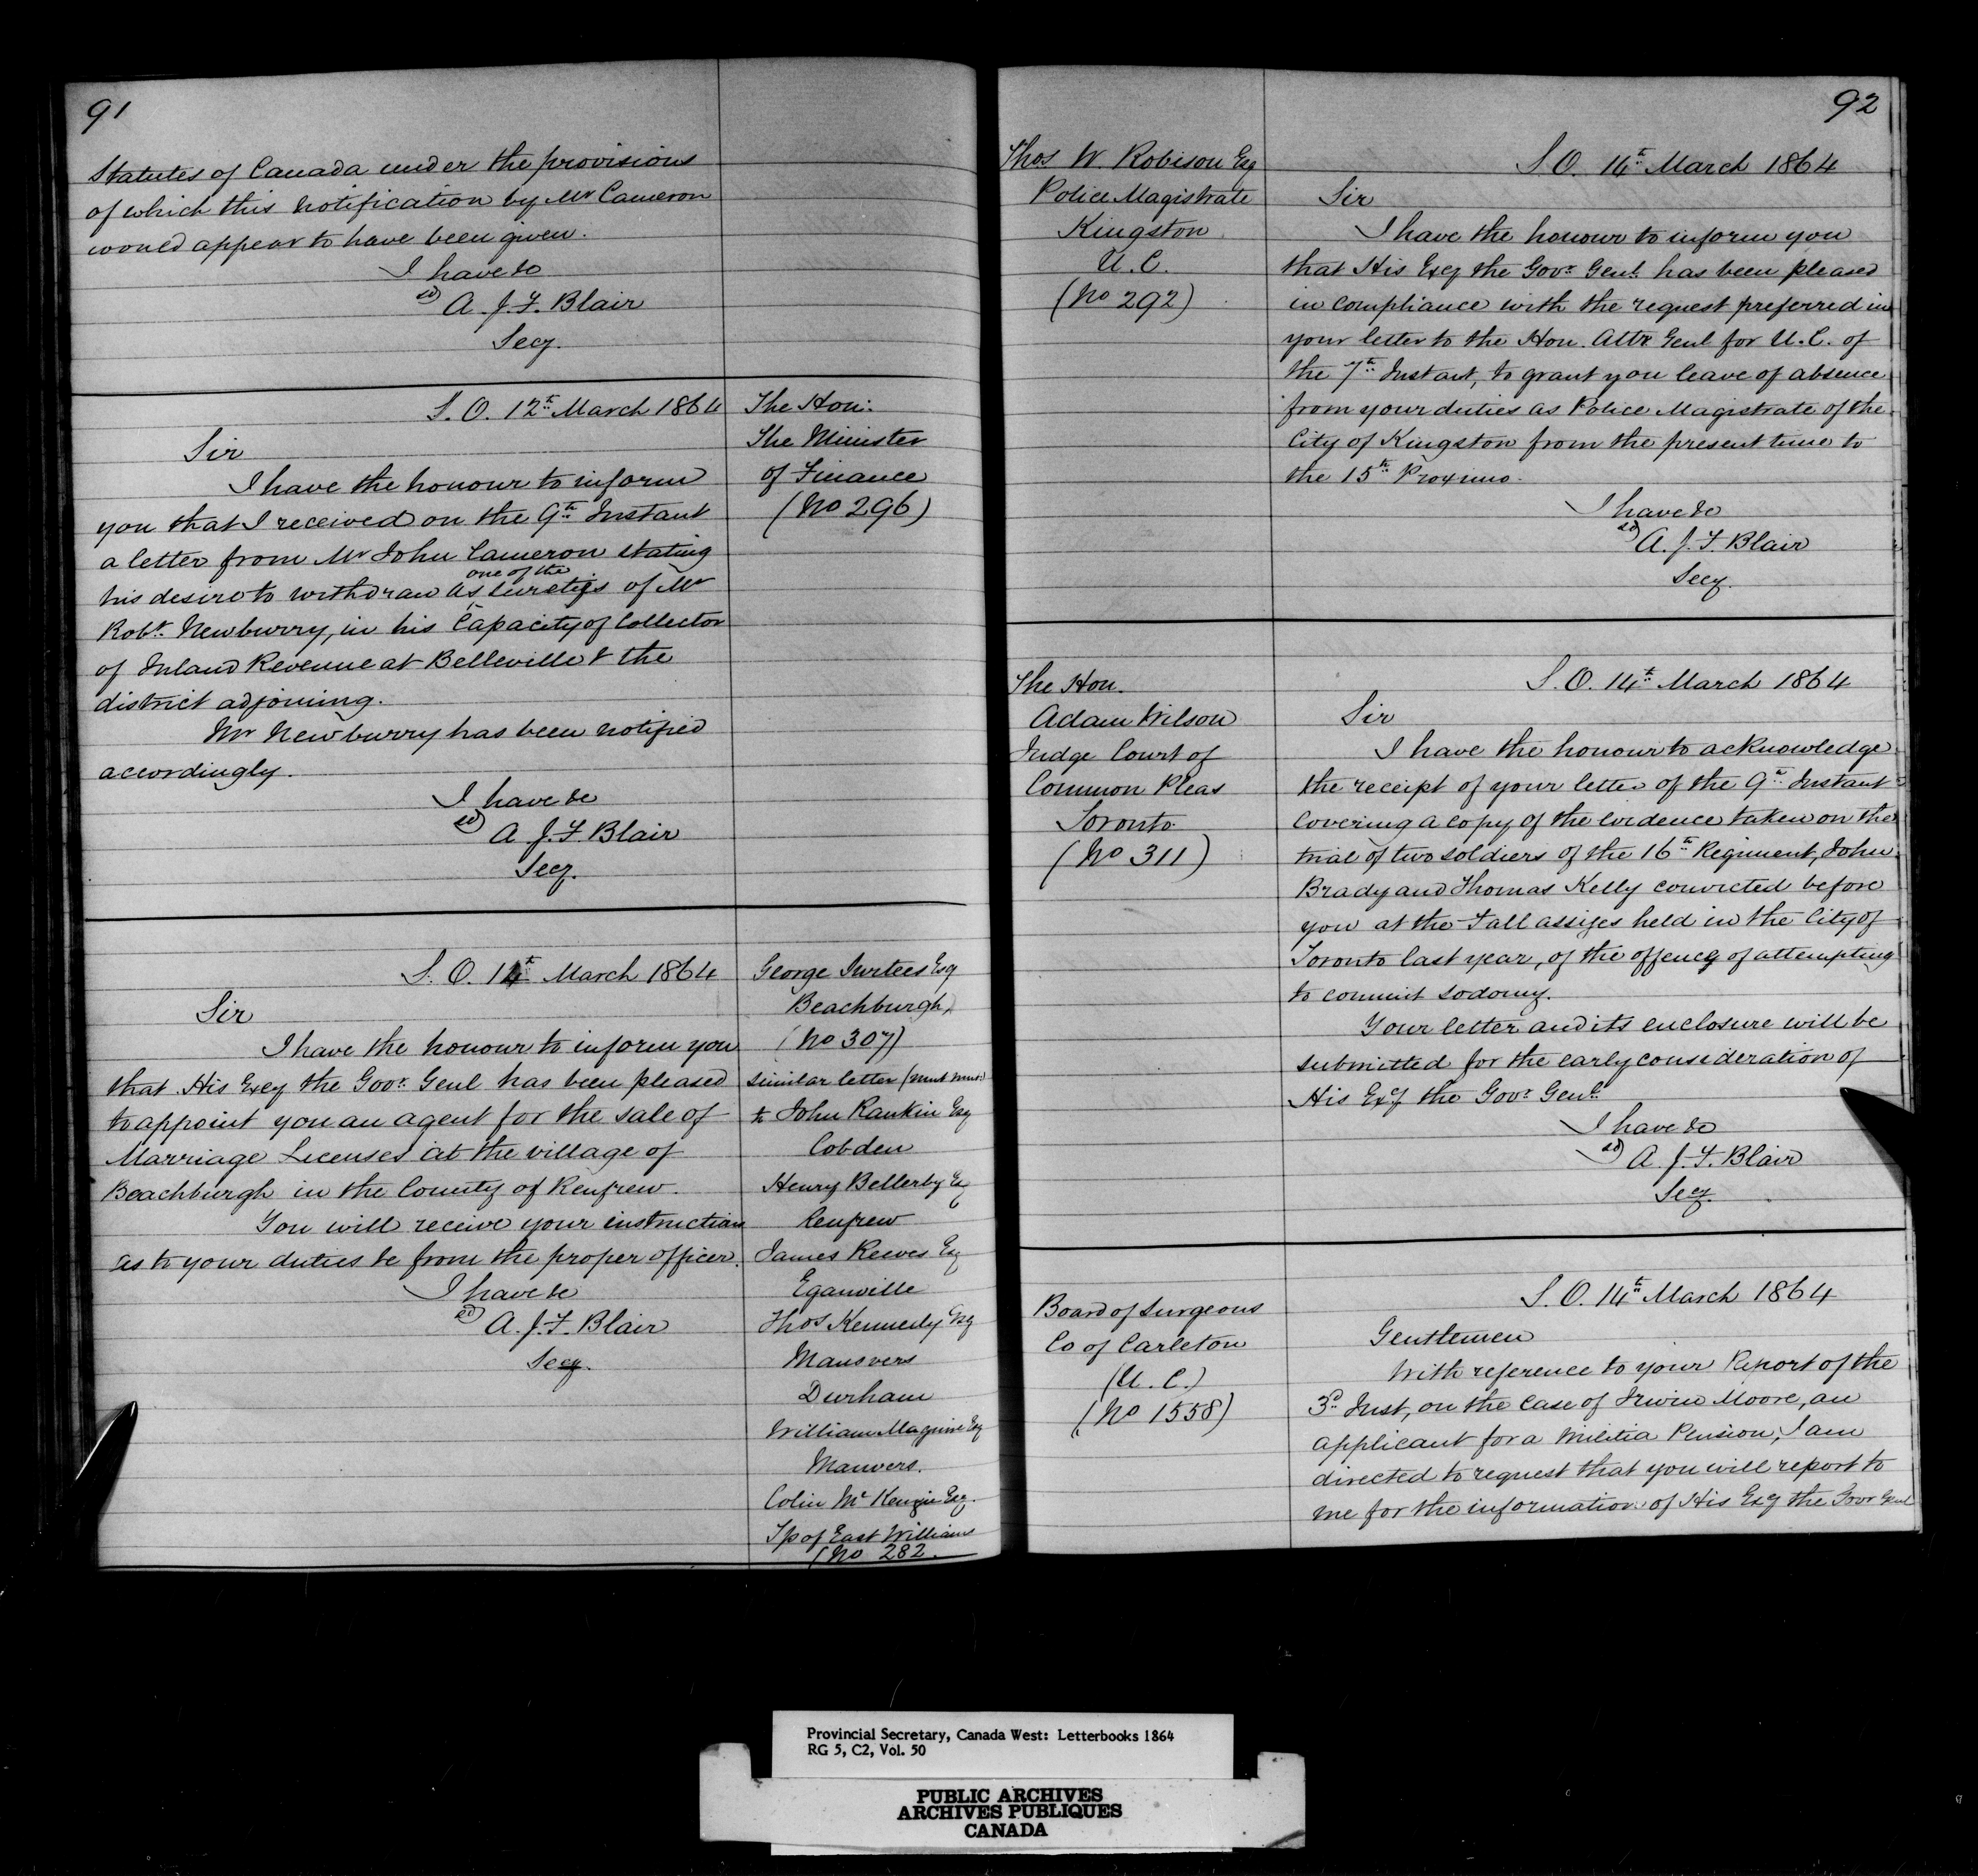 91
Statutes of Canada under the provisions
of which this notification by Mr Cameron
would appear to have been given.
I have &c
sd) A. J. F. Blair
Secy.
S. O. 12th March 1864
The Hon:
The Minister
of Finance
(No 296)
Sir
I have the honour to inform
you that I received on the 9th Instant
a letter from Mr John Cameron stating
one of the
his desire to withdraw as sureties of Mr
Robt. Newburry, in his Capacity of Collector
of Inland Revenue at Belleville & the
district adjoining.
Mr Newburry has been notified
accordingly.
I have &c
sd) A J. F. Blair
Secy.
S. O. 14th March 1864
George Surtees Esq
Beachburgh,
(No 307)
similar letter (mut mut:)
to John Rankin Esq
Cobden
Henry Bellerby Esq
Renfrew
James Reeves Esq
Eganville
Thos Kennedy Esq
Manvers
Durham
William Maguire Esq
Manvers.
Colin McKenzie Esq.
Tp of East Williams
(No 282
Sir
I have the honour to inform you
that His Excy the Govr. Genl has been pleased
to appoint you an agent for the sale of
Marriage Licenses at the village of
Beachburgh in the County of Renfrew.
You will receive your instructions
as to your duties &c from the proper officer.
I have &c
sd) A. J. F. Blair
Secy.
92
Thos W. Robison Esq
Police Magistrate
Kingston
U. C.
(No 292)
S. O. 14th March 1864
Sir
I have the honour to inform you
that His Excy the Govr. Genl. has been pleased
in compliance with the request preferred in
your letter to the Hon. Atty Genl for U. C. of
the 7th Instant, to grant you leave of absence
from your duties as Police Magistrate of the
City of Kingston from the present time to
the 15th Proximo.
I have &c
sd) A. J. F. Blair
Secy.
The Hon.
Adam Wilson
Judge Court of
Common Pleas
Toronto
(No 311)
S. O. 14th March 1864
Sir
I have the honour to acknowledge
the receipt of your letter of the 9th Instant
covering a copy of the evidence taken on the
trial of two soldiers of the 16th Regiment, John
Brady and Thomas Kelly convicted before
you at the Fall assizes held in the City of
Toronto last year, of the offence of attempting
to commit sodomy.
Your letter and its enclosure will be
submitted for the early consideration of
His Excy the Govr Genl.
I have &c
sd) A. J. F. Blair
Secy.
Board of Surgeons
Co of Carleton
(U. C.)
(No 1558)
S. O. 14th March 1864
Gentlemen
With reference to your Report of the
3d. Inst, on the case of Irwin Moore, an
applicant for a Militia Pension, I am
directed to request that you will report to
me for the information of His Excy the Govr Genl
Provincial Secretary, Canada West: Letterbooks 1864
RG 5, C2, Vol. 50
PUBLIC ARCHIVES
ARCHIVES PUBLIQUES
CANADA